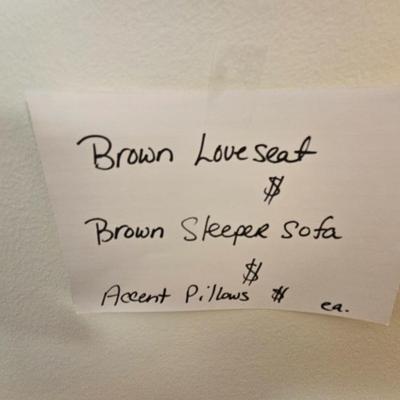 Brown Loveseat
$
Brown Sleeper Sofa
$
Accent Pillows $ ea.